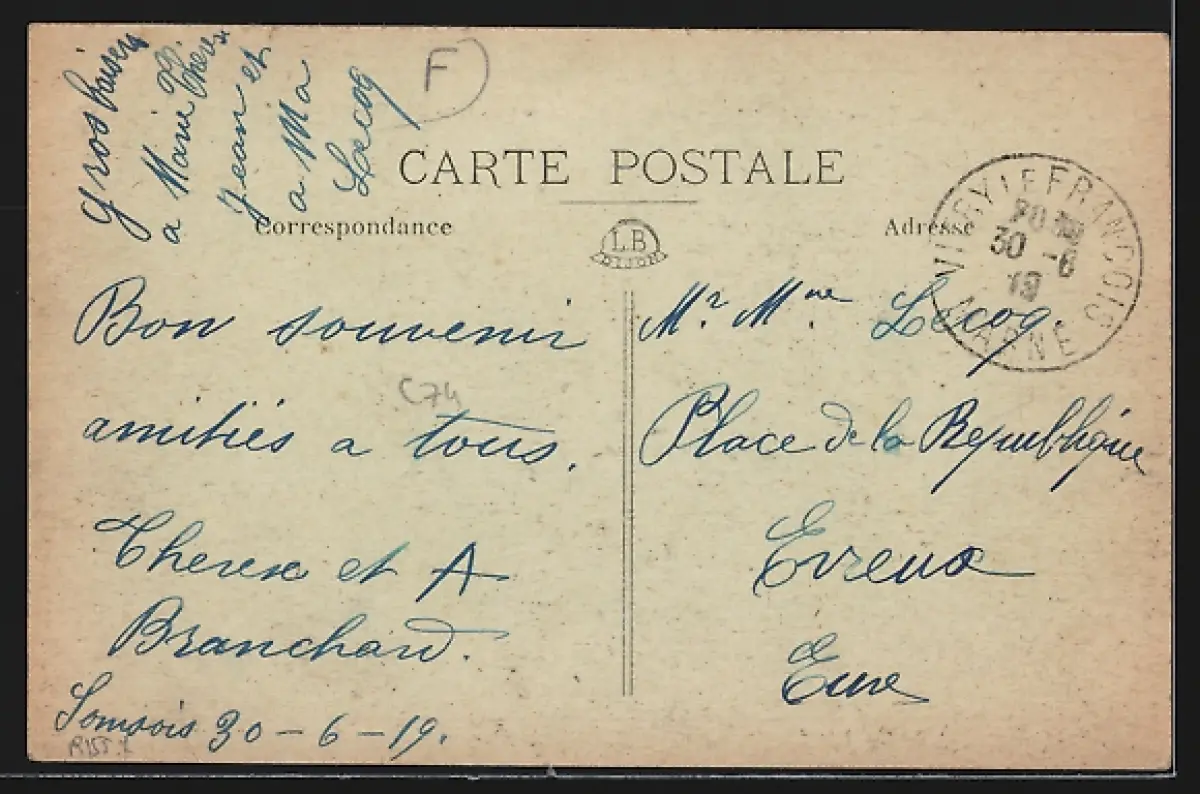 gros baisers
a Marie Thérèse
Jean et
a Ma
Lecoq
F
CARTE POSTALE
Correspondance
Adresse
LB
DIJON
VITRY LE FRANCOIS
30 -6
19
MARNE
Bon souvenir
amitiés a tous.
Therese et A
Branchard.
Somsois 30-6-19.
C74
Mr. Mme Lecoq.
Place de la Republique
Evreux
Eure